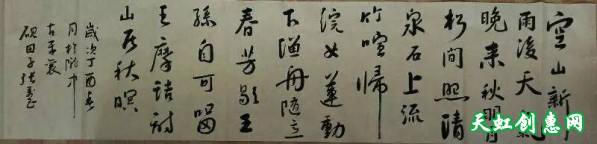 空山新
雨後天氣
晚来秋明月
松间照清
泉石上流
竹喧歸
浣女蓮動
下漁舟隨意
春芳歇王
孫自可留
王摩詰詩
山居秋暝
歲次丁酉春
月於隴中
古平襄
硯田子張
天虹创惠网